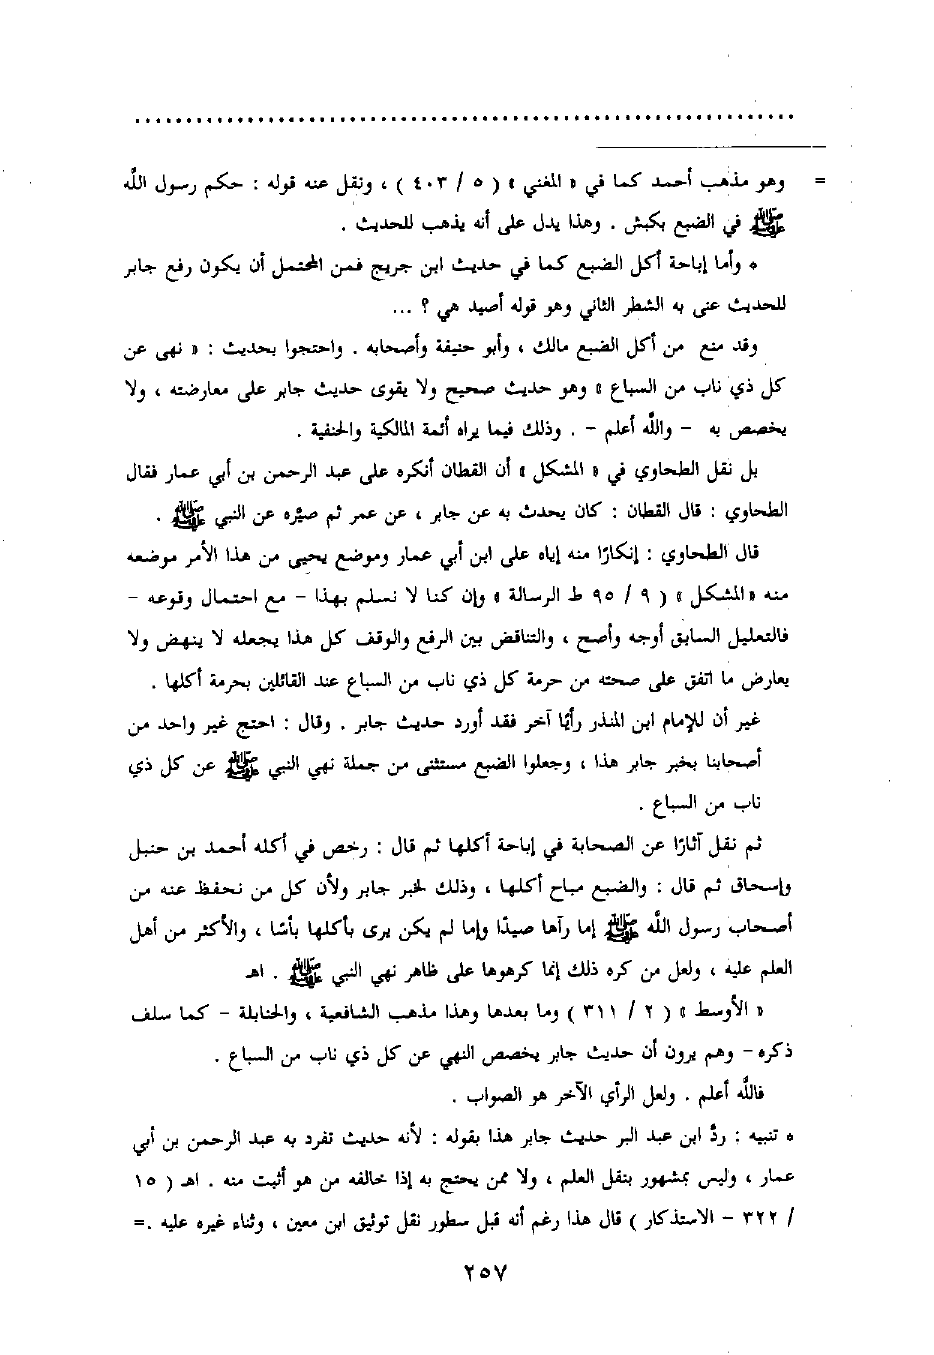 = وهو مذهب أحمد كما في « المغني » ( ٥ / ٤٠٣ ) ، ونقل عنه قوله : حكم رسول اللَّه
ﷺ في الضبع بكبش . وهذا يدل على أنه يذهب للحديث .
* وأما إباحة أكل الضبع كما في حديث ابن جريج فمن المحتمل أن يكون رفع جابر
للحديث عنى به الشطر الثاني وهو قوله أصيد هي ؟ ...
وقد منع من أكل الضبع مالك ، وأبو حنيفة وأصحابه . واحتجوا بحديث : « نهى عن
كل ذي ناب من السباع » وهو حديث صحيح ولا يقوى حديث جابر على معارضته ، ولا
يخصص به - واللَّه أعلم - . وذلك فيما يراه أئمة المالكية والحنفية .
بل نقل الطحاوي في « المشكل » أن القطان أنكره على عبد الرحمن بن أبي عمار فقال
الطحاوي : قال القطان : كان يحدث به عن جابر ، عن عمر ثم صيَّره عن النبي ﷺ .
قال الطحاوي : إنكارًا منه إياه على ابن أبي عمار وموضع يحيى من هذا الأمر موضعه
منه « المشكل » ( ٩ / ٩٥ ط الرسالة » وإن كنا لا نسلم بهذا - مع احتمال وقوعه -
فالتعليل السابق أوجه وأصح ، والتناقض بين الرفع والوقف كل هذا يجعله لا ينهض ولا
يعارض ما اتفق على صحته من حرمة كل ذي ناب من السباع عند القائلين بحرمة أكلها .
غير أن للإمام ابن المنذر رأيًا آخر فقد أورد حديث جابر . وقال : احتج غير واحد من
أصحابنا بخبر جابر هذا ، وجعلوا الضبع مستثنى من جملة نهي النبي ﷺ عن كل ذي
ناب من السباع .
ثم نقل آثارًا عن الصحابة في إباحة أكلها ثم قال : رخص في أكله أحمد بن حنبل
وإسحاق ثم قال : والضبع مباح أكلها ، وذلك لخبر جابر ولأن كل من نحفظ عنه من
أصحاب رسول اللَّه ﷺ إما رآها صيدًا وإما لم يكن يرى بأكلها بأسًا ، والأكثر من أهل
العلم عليه ، ولعل من كره ذلك إنما كرهوها على ظاهر نهي النبي ﷺ . اهـ
« الأوسط » ( ٢ / ٣١١ ) وما بعدها وهذا مذهب الشافعية ، والحنابلة - كما سلف
ذكره - وهم يرون أن حديث جابر يخصص النهي عن كل ذي ناب من السباع .
فاللَّه أعلم . ولعل الرأي الآخر هو الصواب .
* تنبيه : ردَّ ابن عبد البر حديث جابر هذا بقوله : لأنه حديث تفرد به عبد الرحمن بن أبي
عمار ، وليس بمشهور بنقل العلم ، ولا ممن يحتج به إذا خالفه من هو أثبت منه . اهـ ( ١٥
/ ٣٢٢ - الاستذكار ) قال هذا رغم أنه قبل سطور نقل توثيق ابن معين ، وثناء غيره عليه .=
٢٥٧